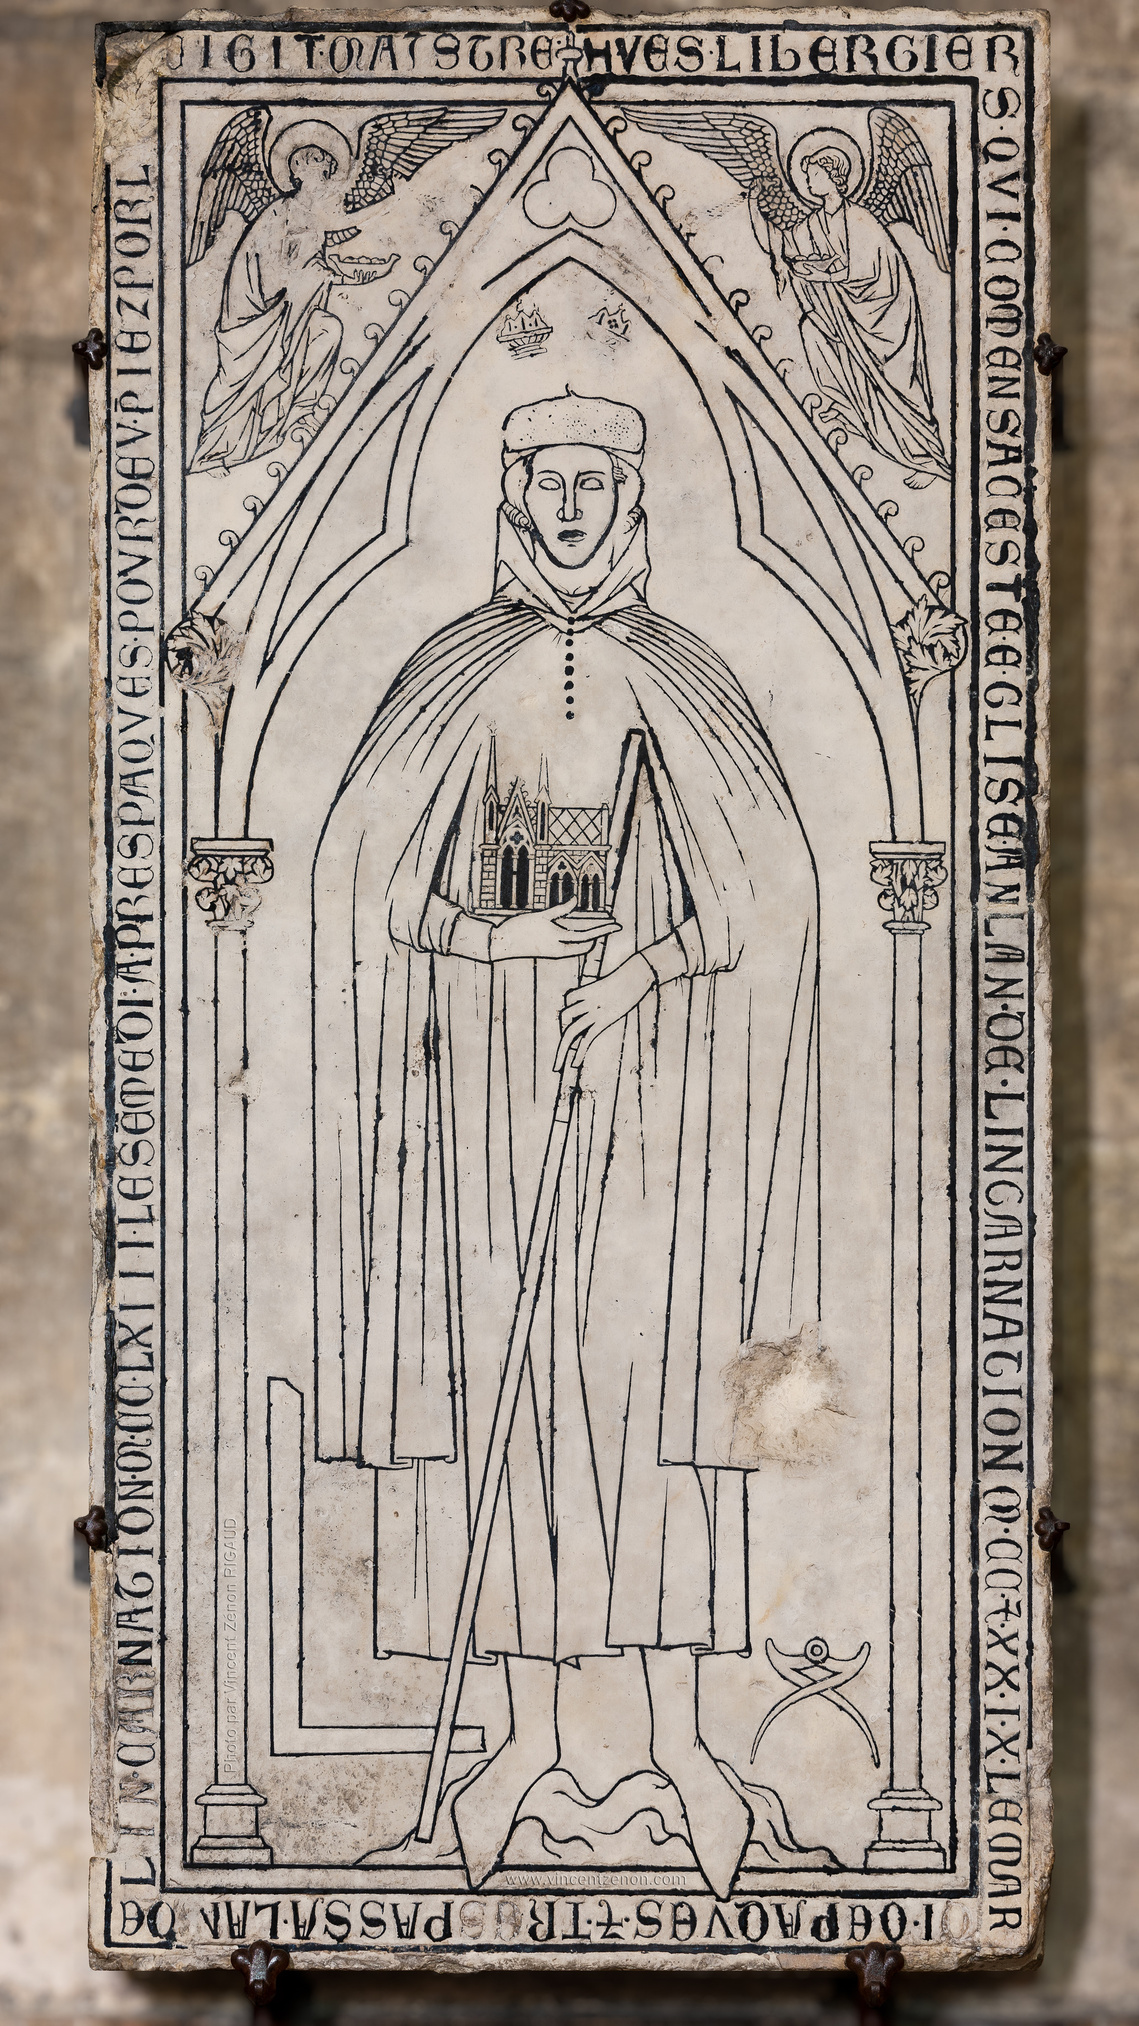 IGIT·MAISTRE·HVES·LIBERGIER
S·QVI·COMENSA·CESTE·EGLISE·AN·LAN·DE·LINCARNATION·M·CC·⁊·XX·IX·LE·MAR
DI·DE·PAQVES·⁊·TRESPASSA·LAN·DE
LINCARNATION·M·CC·LXIII·LE·SEMEDI·APRES·PAQVES·POVR·DEV·P̄IEZ POR L
Photo par Vincent Zénon RIGAUD
www.vincentzenon.com